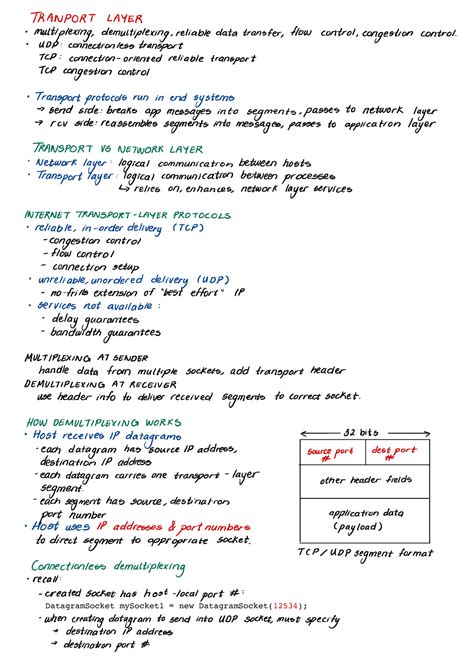 TRANPORT LAYER
• multiplexing, demultiplexing, reliable data transfer, flow control, congestion control.
• UDP: connectionless transport
TCP: connection-oriented reliable transport
TCP congestion control
• Transport protocols run in end systems
→ send side: breaks app messages into segments, passes to network layer
→ rcv side: reassembles segments into messages, passes to application layer
TRANSPORT VS NETWORK LAYER
• Network layer: logical communication between hosts
• Transport layer: logical communication between processes
↳ relies on, enhances, network layer services
INTERNET TRANSPORT-LAYER PROTOCOLS
• reliable, in-order delivery (TCP)
- congestion control
- flow control
- connection setup
• unreliable, unordered delivery (UDP)
- no-frills extension of "best effort" IP
• services not available:
- delay guarantees
- bandwidth guarantees
MULTIPLEXING AT SENDER
handle data from multiple sockets, add transport header
DEMULTIPLEXING AT RECEIVER
use header info to deliver received segments to correct socket.
HOW DEMULTIPLEXING WORKS
• Host receives IP datagrams
- each datagram has source IP address,
destination IP address
- each datagram carries one transport-layer
segment.
- each segment has source, destination
port number
• Host uses IP addresses & port numbers
to direct segment to appropriate socket.
32 bits
source port #
dest port #
other header fields
application data
(payload)
TCP/UDP segment format
Connectionless demultiplexing
• recall:
- created socket has host-local port #:
DatagramSocket mySocket1 = new DatagramSocket(12534);
- when creating datagram to send into UDP socket, must specify
→ destination IP address
→ destination port #